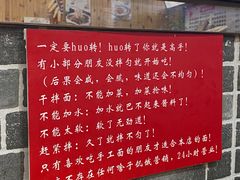 一定要huo转！huo转了你就是高手！
有小部分朋友没拌匀就开始吃！
（后果会咸，会腻，味道还会不均匀）！
干拌面：不能加菜，加菜抢味！
不能加水：加水就巴不起来酱料了！
不能太软：软了无劲道！
赶紧拌：久了就拌不匀了！
只有喜欢吃手工面的朋友才适合本店的面！
不存在任何饿干机械营销，24小时营业！